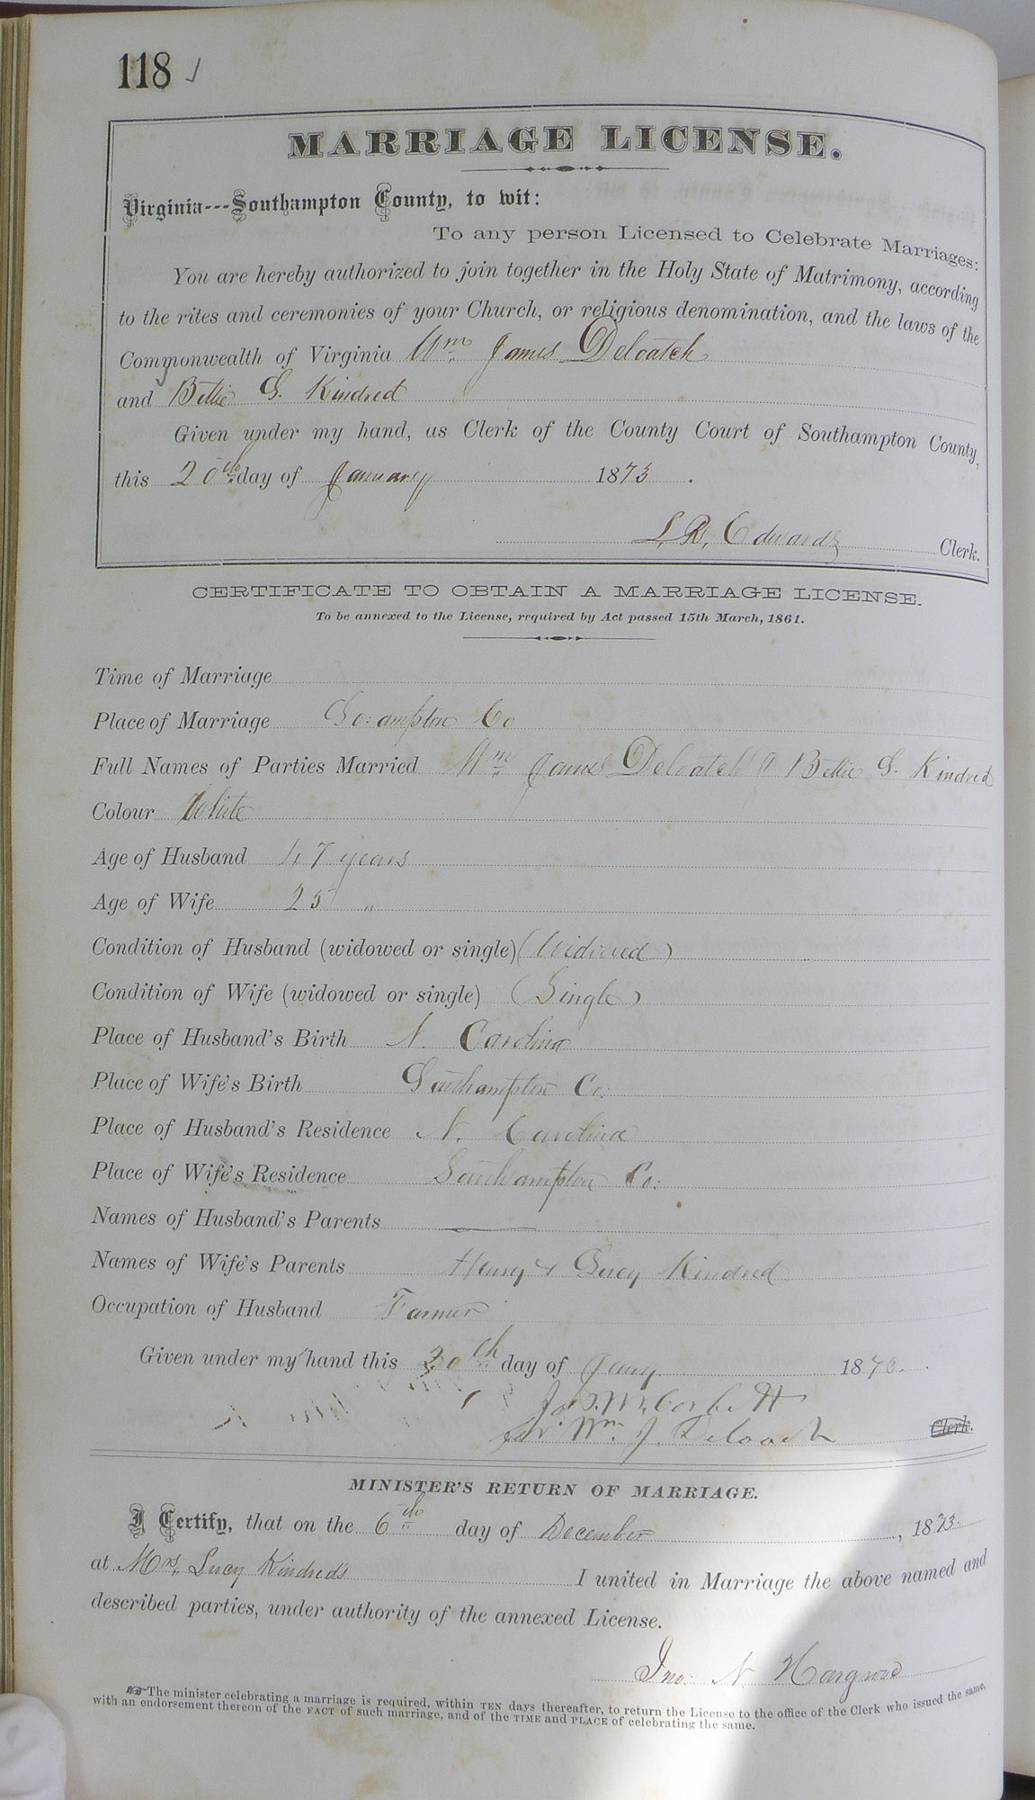 118 ✓
MARRIAGE LICENSE.
Virginia---Southampton County, to wit:
To any person Licensed to Celebrate Marriages:
You are hereby authorized to join together in the Holy State of Matrimony, according
to the rites and ceremonies of your Church, or religious denomination, and the laws of the
Commonwealth of Virginia Wm James Deloatch
and Bettie S. Kindred
Given under my hand, as Clerk of the County Court of Southampton County,
this 20th day of January 1873.
L. R. Edwards Clerk.
CERTIFICATE TO OBTAIN A MARRIAGE LICENSE.
To be annexed to the License, required by Act passed 15th March, 1861.
Time of Marriage
Place of Marriage So:ampton Co
Full Names of Parties Married Wm James Deloatch & Bettie S. Kindred
Colour White
Age of Husband 47 years
Age of Wife 25 "
Condition of Husband (widowed or single) (Widowed)
Condition of Wife (widowed or single) (Single)
Place of Husband's Birth N. Carolina
Place of Wife's Birth Southampton Co:
Place of Husband's Residence N. Carolina
Place of Wife's Residence Southampton Co:
Names of Husband's Parents —
Names of Wife's Parents Henry & Lucy Kindred
Occupation of Husband Farmer
Given under my hand this 20th day of Jany. 1873.
for Wm. J. Deloach Clerk.
MINISTER'S RETURN OF MARRIAGE.
I Certify, that on the 6th day of December, 1873.
at Mrs. Lucy Kindreds I united in Marriage the above named and
described parties, under authority of the annexed License.
Jno. N. Hargrave
The minister celebrating a marriage is required, within TEN days thereafter, to return the License to the office of the Clerk who issued the same,
with an endorsement thereon of the FACT of such marriage, and of the TIME and PLACE of celebrating the same.